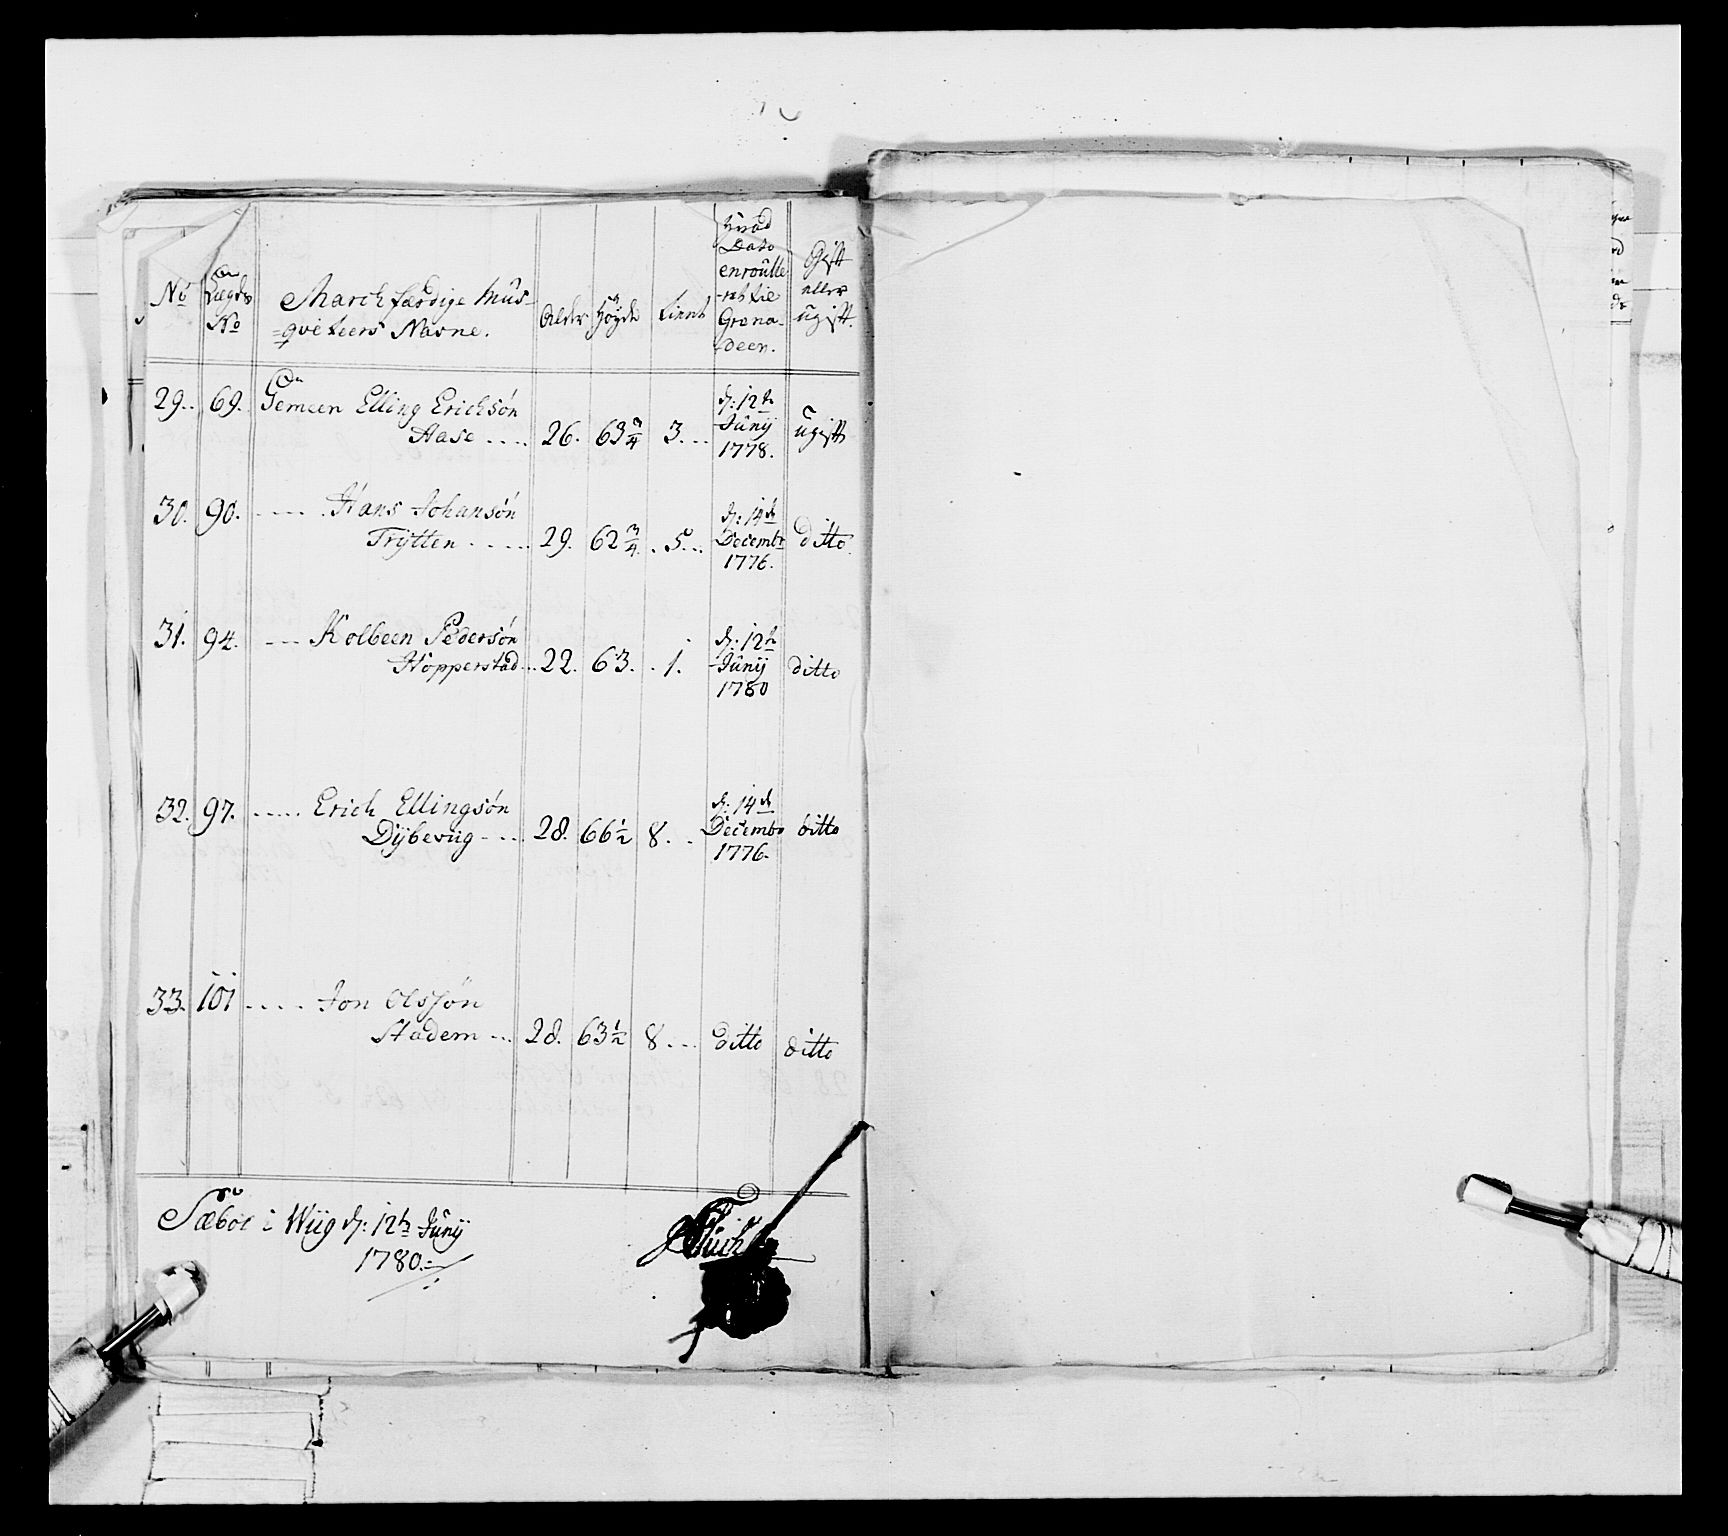 No
Lægds
No
March færdige Mus-
=qveteers Navne.
Alder
Høyde
tient
hvad
Dato
enroulle
-ret til
Grena-
deer.
Gift
eller
ugift.
29. 69. Gemeen Elling Erichsøn
Aase .... 26. 63 3/4 3... d: 12te Junij 1778. ugift
30. 90. .... Hans Johansøn
Trytten ..... 29. 62 3/4 . 5... d: 14de Decembr 1776. ditto.
31. 94. --- Kolbeen Pedersøn
Hopperstad .. 22. 63. . 1. d: 12te Junij 1780 ditto
32. 97. ..... Erich Ellingsøn
Dybeviig - ... 28. 66 1/2 8. . d: 14de Decembr 1776. ditto
33. 101 .... Jon Olssøn
Stadem ... 28. 63 1/2 8... ditto ditto
Sæboe i Wiig d: 12te Junij
1780.